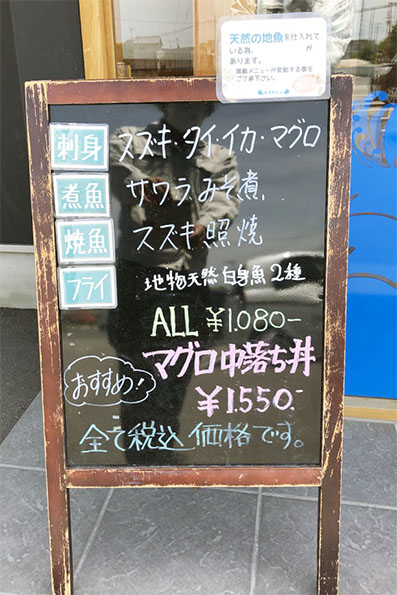 天然の地魚を仕入れて
いる為、
あります。
ご了承下さい。
刺身 スズキ・タイ・イカ・マグロ
煮魚 サワラみそ煮
焼魚 スズキ照焼
フライ 地物天然白身魚2種
ALL ¥1.080-
マグロ中落ち丼
おすすめ!
¥1.550-
全て税込価格です。